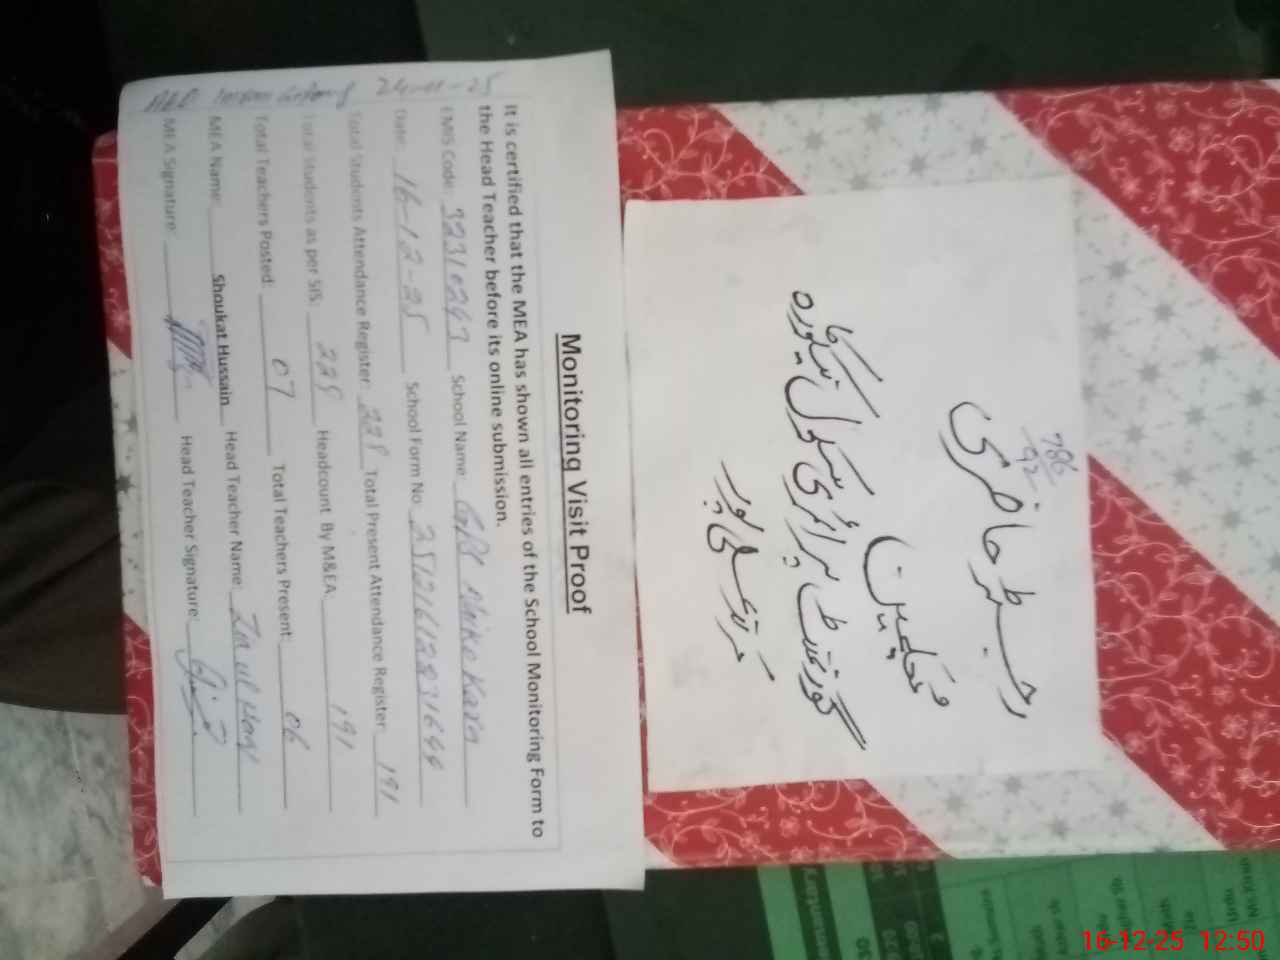 786
92
رجسٹر حاضری
معلمین
گورنمنٹ پرائمری سکول نیکوکارہ
مرکز علی پور
Monitoring Visit Proof
It is certified that the MEA has shown all entries of the School Monitoring Form to
the Head Teacher before its online submission.
EMIS Code: 32310247 School Name: GPS
Date: 16-12-25 School Form No. 251216122831644
Total Students Attendance Register: 228 Total Present Attendance Register 191
Total students as per SIS: 228 Headcount By M&EA 191
Total Teachers Posted: 07 Total Teachers Present: 06
MEA Name: Shoukat Hussain Head Teacher Name: Zia ul Haq
MEA Signature: Head Teacher Signature:
24-11-25
16-12-25 12:50